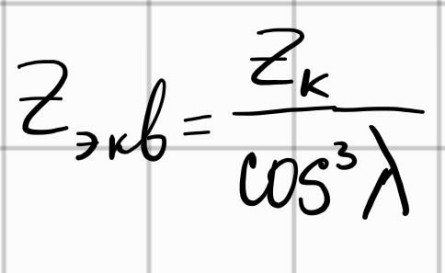 Zэкв = Zк / cos³λ